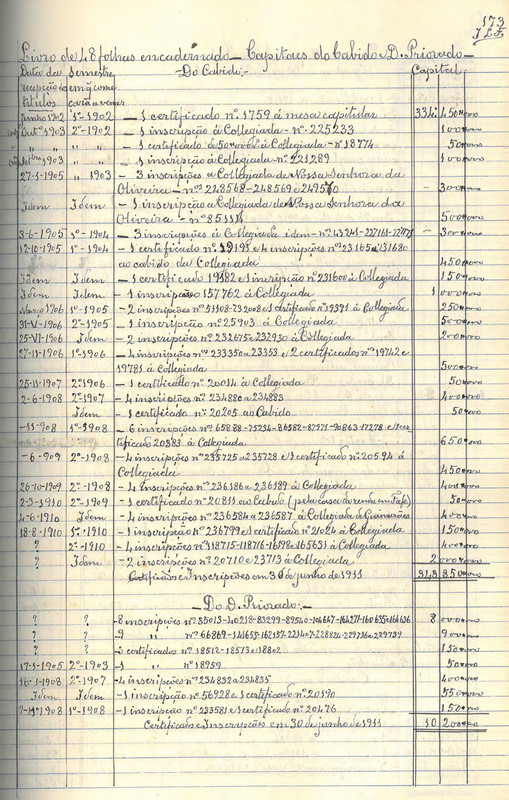 173
Livro de 48 folhas encadernado — Capitaes do Cabido e D. Priorado —
Data da Semestre — Do Cabido — Capital
recepção dos em q come
titulos çará a vencer
Junho 1902 1º-1902 — 1 certificado nº 1759 á mesa capitular 334. 450$000
Outº 1903 2º-1902 — 1 inscripção á Collegiada — nº 225233 100$000
" " " " — 1 certificado de á Collegiada — nº 18774 50$000
1903 " " — 1 inscripção á Collegiada — nº 221289 100$000
27-1-1905 " 1903 — 3 inscripções a Collegiada de Nossa Senhora da
Oliveira — nos 248568-248569 e 249570 — 300$000
Idem Idem — 1 inscripção a Collegiada de Nossa Senhora da
Oliveira — nº 500$000
3-6-1905 1º-1904 — 3 inscripções á Collegiada idem — nos — 300$000
12-10-1905 1º-1904 — 1 certificado nº e 4 inscripções nos 23165 a 231680
ao cabido da Collegiada 450$000
Idem Idem — 1 certificado 19382 e 1 incripção nº 231600 á Collegiada 150$000
Idem Idem — 1 inscripção 157762 á Collegiada 1 000$000
Março 1906 1º-1905 — 2 inscripções nos e 1 certificado nº 19391 á Collegiada 250$000
31-V-1906 2º-1905 — 1 inscripção nº 25903 á Collegiada 500$000
25-VI-1906 Idem — 2 inscripções nos 232675 e 232930 á Collegiada 200$000
27-11-1906 1º-1906 — 4 inscripções nos 233350 a 23353 e 2 certificados nos 19742 e
19781 á Collegiada 500$000
25-11-1907 2º-1906 — 1 certificado nº 20014 á Collegiada 50$000
2-6-1908 2º-1907 — 4 inscripções nos 234880 a 234883 400$000
Idem — 1 certificado nº 20205 ao Cabido 50$000
-11-908 1º-1908 — 6 inscripções nos 65888-75234-86582-87971-90863-17278 e 1 cer
tificado 20383 á Collegiada 650$000
-6-909 2º-1908 — 4 inscripções nos 235725 a 235728 e 1 certificado nº 20594 á
Collegiada 450$000
26-10-1909 2º-1908 — 4 Inscripções nos 236186 a 236189 á Collegiada 400$000
2-3-1910 2º-1909 — 1 certificado nº 20811 ao Cabido 50$000
4-6-1910 Idem — 4 inscripções nos 236584 a 236587 á Collegiada de Guimarães 400$000
18-8-1910 1º-1910 — 1 inscripção nº 236799 e 1 certificado nº 21024 á Collegiada 150$000
? 2º-1910 — 4 inscripções nos 118715-118716-16198 e 165631 á Collegiada 400$000
? Idem — 2 inscripções nos 20710 e 23713 á Collegiada 2 000$000
Certificados e Inscripções em 30 de junho de 1911 343. 850$000
— Do D. Priorado: —
? ? — 8 inscripções nos 35013-40218-83299-89540- 8 000$000
? ? — 9 " nos 9 00$000
? ? — 3 certificados nos 18512-18573 e 18802 150$000
17-1-1905 2º-1903 — 1 " nº 18959 50$000
16-1-1908 2º-1907 — 4 inscripções nos 234832 a 234835 400$000
Idem Idem — 1 inscripção nº 56928 e 1 certificado nº 20190 550$000
1908 1º-1908 — 1 inscripção nº 233581 e 1 certificado nº 20476 150$000
Certificados e Inscrições em 30 de junho de 1911 10 200$000